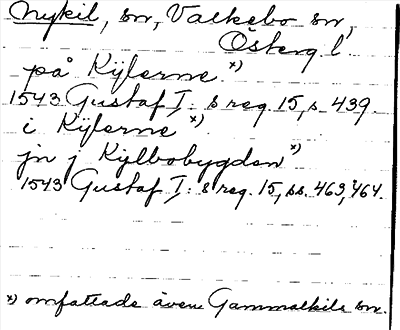 Nykil, sn, Valkebo sn,
Österg. l.
på Kÿlerne *)
1543 Gustaf I: s reg. 15, s. 439.
i Kÿlerne *)
jn j Kÿlbobygden *)
1543 Gustaf I: s reg. 15, ss. 463, 464.
*) omfattade även Gammalkils sn.